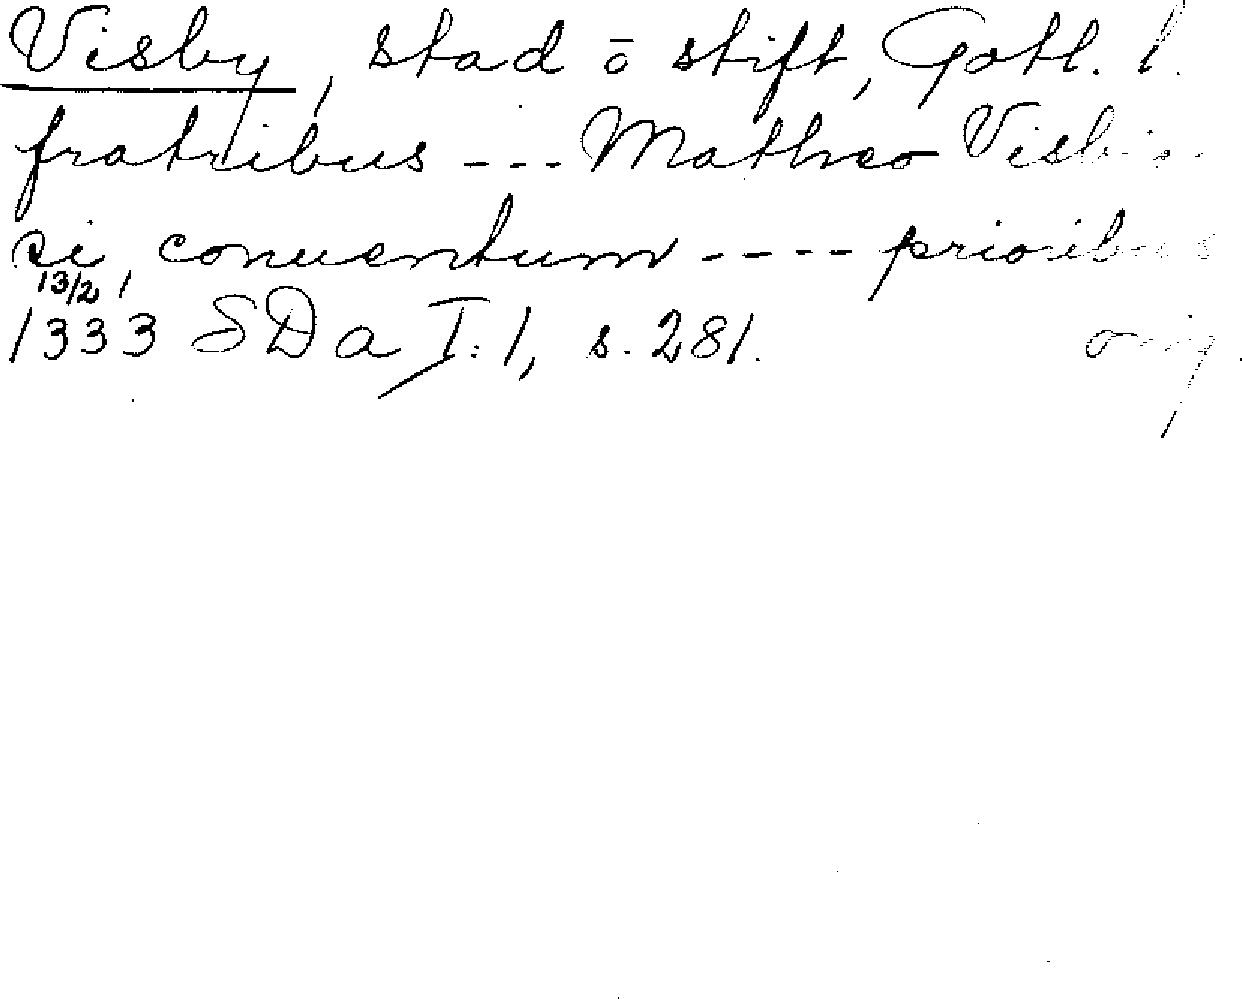 Visby, stad ō stift, Gotl. l.
fratribus --- Matheo
si conuentum ---- prioribus
13/2
1333 SDa I:1, s. 281. orig.